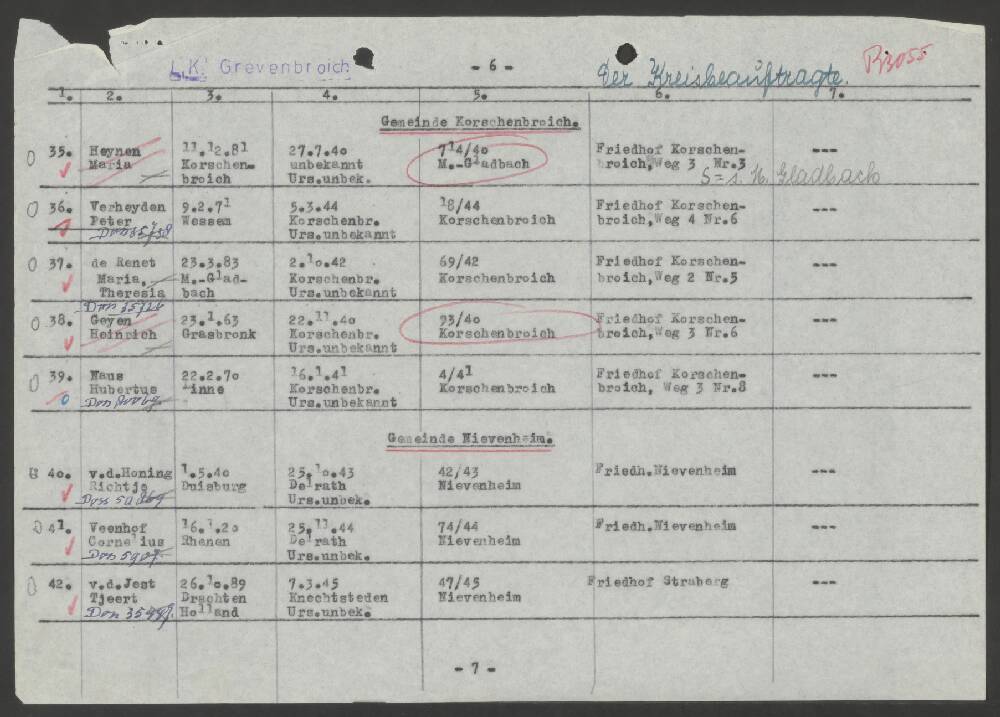 L.K. Grevenbroich
- 6 -
Der Kreisbeauftragte.
1. 2. 3. 4. 5. 6. 7.
Gemeinde Korschenbroich.
35. Heynen 11.12.81 27.7.40 714/40 Friedhof Korschen- ---
Maria Korschen- unbekannt M.-Gladbach broich,Weg 3 Nr.3
broich Urs.unbek.
Gladbach
36. Verheyden 9.2.71 5.3.44 18/44 Friedhof Korschen- ---
Peter Wessem Korschenbr. Korschenbroich broich,Weg 4 Nr.6
Urs.unbekannt
37. de Renet 23.3.83 2.10.42 69/42 Friedhof Korschen- ---
Maria, M.-Glad- Korschenbr. Korschenbroich broich,Weg 2 Nr.5
Theresia bach Urs.unbekannt
38. Geyen 23.1.63 22.11.40 93/40 Friedhof Korschen- ---
Heinrich Grasbronk Korschenbr. Korschenbroich broich,Weg 3 Nr.6
Urs.unbekannt
39. Naus 22.2.70 16.1.41 4/41 Friedhof Korschen- ---
Hubertus Korschenbr. Korschenbroich broich, Weg 3 Nr.8
Urs.unbekannt
Gemeinde Nievenheim.
40. v.d.Honing 1.5.40 25.10.43 42/43 Friedh.Nievenheim ---
Richtje Duisburg Delrath Nievenheim
Urs.unbek.
41. Veenhof 16.1.20 25.11.44 74/44 Friedh.Nievenheim ---
Cornelius Rhenen Delrath Nievenheim
Urs.unbek.
42. v.d.Jest 26.10.89 7.3.45 47/45 Friedhof Straberg ---
Tjeert Drachten Knechtsteden Nievenheim
Holland Urs.unbek.
- 7 -